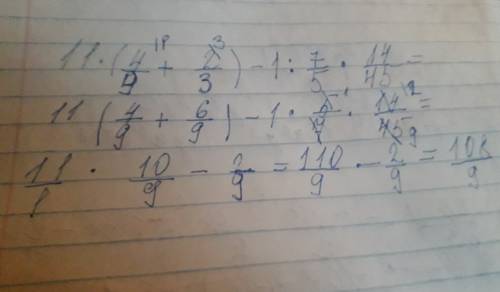 11·(4/9 + 2/3) - 1 : 7/5 · 14/45 =
11(4/9 + 6/9) - 1 · 5/7 · 14/45 =
11/1 · 10/9 - 2/9 = 110/9 - 2/9 = 108/9